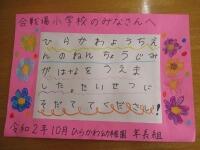 合戦場小学校のみなさんへ
ひらかわようちえ
んのねんちょうぐみ
がはなをうえま
した。たいせつに
そだててください!
令和2年10月 ひらかわ幼稚園 年長組